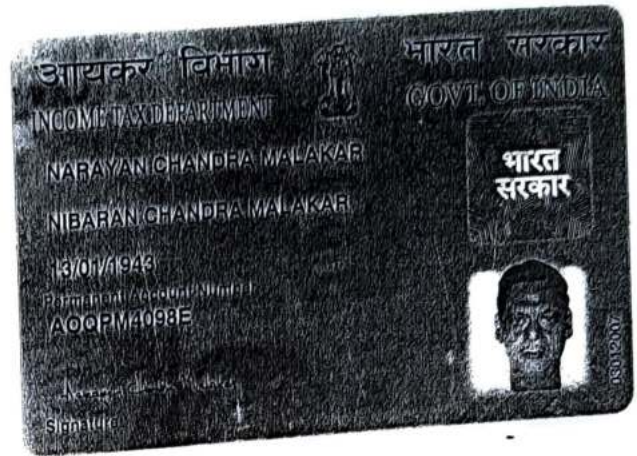 आयकर विभाग
INCOME TAX DEPARTMENT
भारत सरकार
GOVT. OF INDIA
NARAYAN CHANDRA MALAKAR
NIBARAN CHANDRA MALAKAR
13/01/1943
Permanent Account Number
AOQPM4098E
Signature
भारत
सरकार
03012007